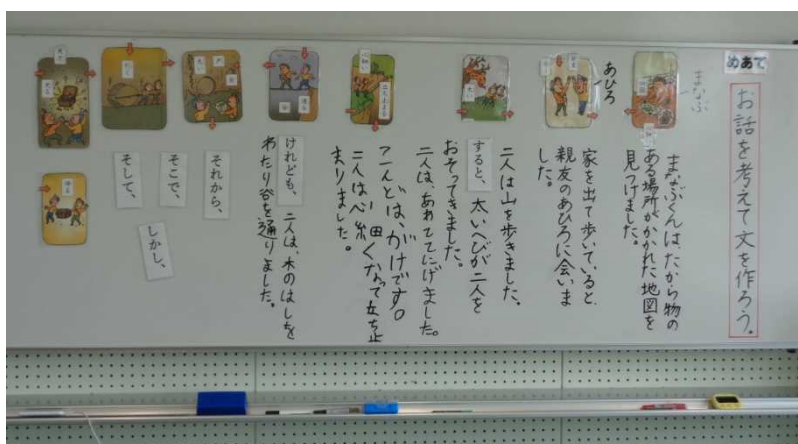 めあて
お話を考えて文を作ろう。
まなぶ
まなぶくんは、たから物の
ある場所がかかれた地図を
見つけました。
あひろ
家を出て歩いていると、
親友のあひろに会いま
した。
二人は山を歩きました。
すると、太いへびが二人を
おそってきました。
二人は、あわててにげました。
こんどは、がけです。
二人は心細くなって立ち止
まりました。
けれども、二人は、木のはしを
わたり谷を通りました。
それから、
そこで、
しかし、
そして、